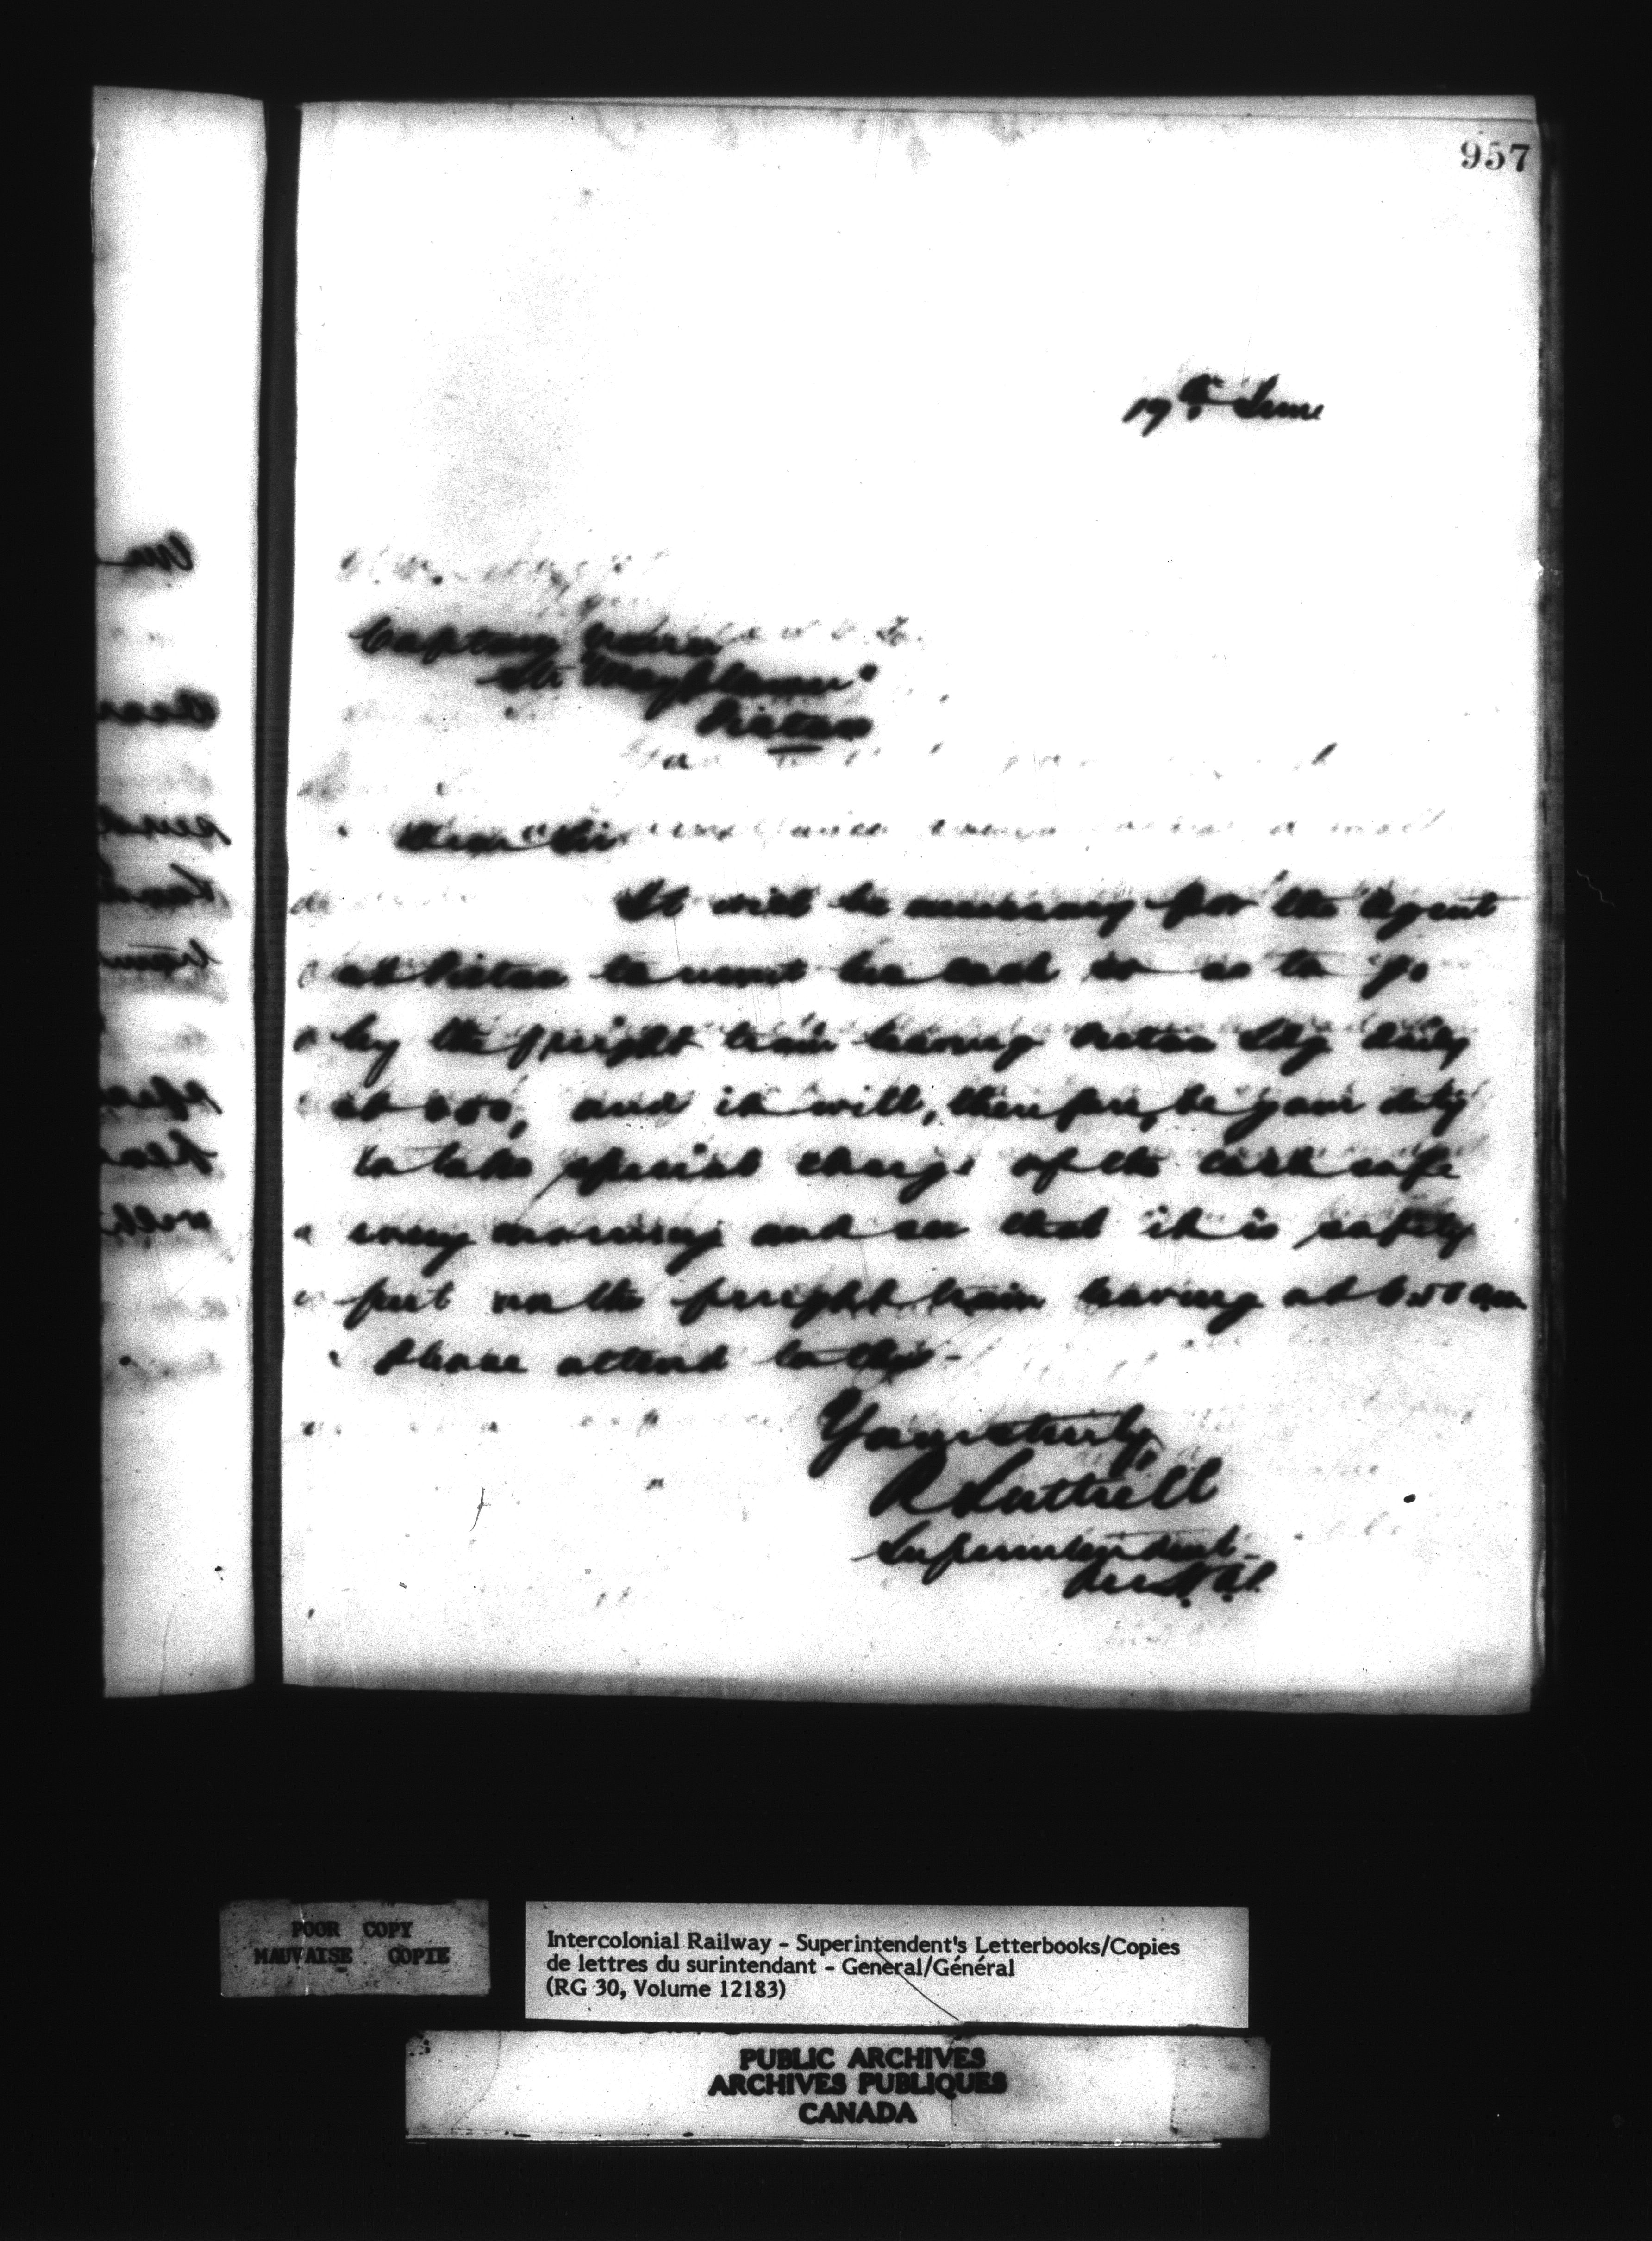 957
19th June
Captain
Str "Mayflower"
Pictou
Dear Sir
It will be necessary for the Agent
at Pictou to remit his cash so as to go
by the freight train leaving Pictou Ldg daily
at 6.50, and it will, therefore, be your duty
to take special charge of the cash safe
every morning and see that it is safely
put on the freight train leaving at 6.50 am
Please attend to this -
Yours truly,
R Luttrell
Superintendent
POOR COPY
MAUVAISE COPIE
Intercolonial Railway - Superintendent's Letterbooks/Copies
de lettres du surintendant - General/Général
(RG 30, Volume 12183)
PUBLIC ARCHIVES
ARCHIVES PUBLIQUES
CANADA